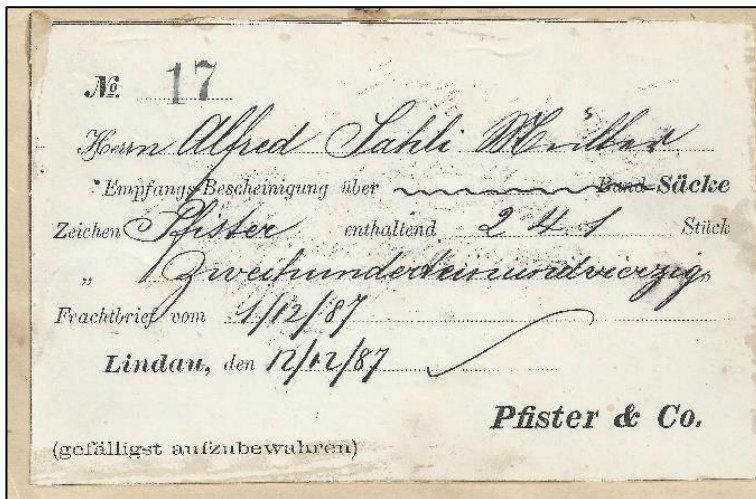 № 17
Herrn Alfred Sahli Müller
Empfangs-Bescheinigung über Bund Säcke
Zeichen Pfister enthaltend 241 Stück
„ Zweihunderteinundvierzig
Frachtbrief vom 1/12/87
Lindau, den 12/12/87
Pfister & Co.
(gefälligst aufzubewahren)